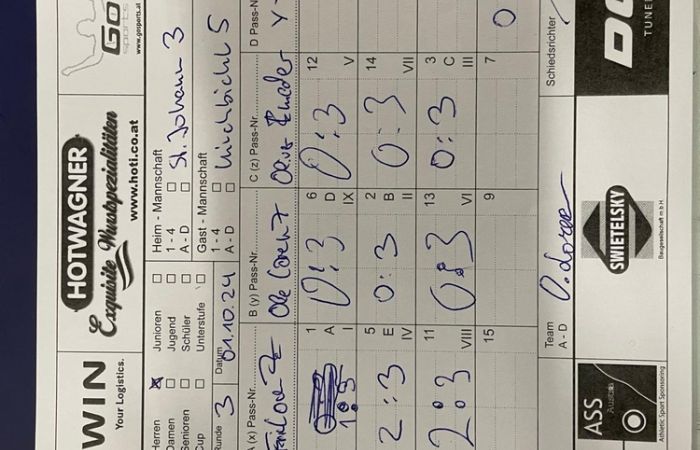 WIN
Your Logistics.
HOTWAGNER
Exquisite Wurstspezialitäten
www.hoti.co.at
Go
sports
www.gosports.at
Herren Junioren Heim - Mannschaft
Damen Jugend 1 - 4 St. Johann 3
Senioren Schüler A - D
Cup Unterstufe Gast - Mannschaft
Runde 3 Datum 01.10.24 1 - 4 Kirchbichl 5
A - D
A (x) Pass-Nr. B (y) Pass-Nr. C (z) Pass-Nr. D Pass-N
1 6 12
A D
1:3 0:3 0:3
I IX V
5 2 14
E B
2:3 0:3 0:3
IV II VII
11 13 3
C
2:3 0:3 0:3
VIII VI III
15 9 7
0
Team
A - D
Schiedsrichter
ASS
Austria
Athletic Sport Sponsoring
SWIETELSKY
Baugesellschaft m b H
DO
TUNE